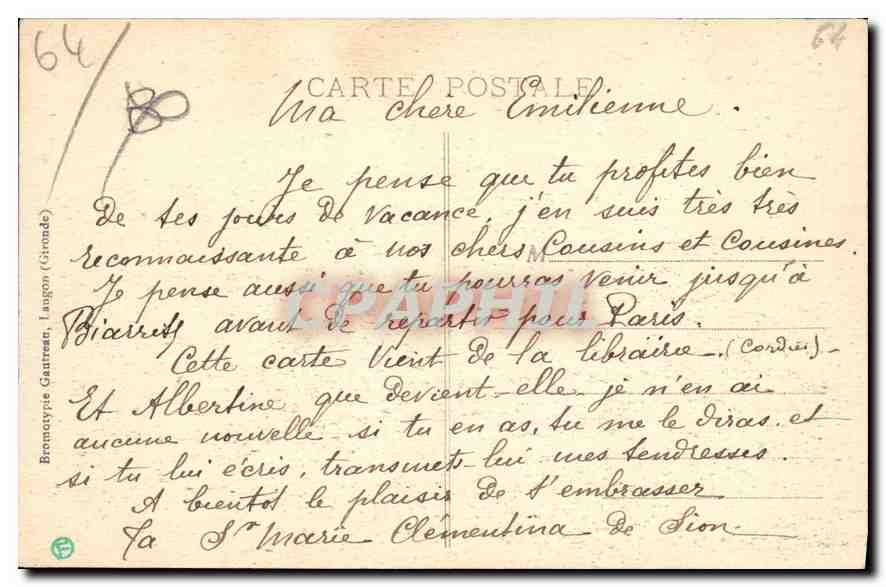 64
64
CARTE POSTALE
Ma chere Emilienne.
Je pense que tu profites bien
de tes jours de vacance, j'en suis très très
reconnaissante à nos chers Cousins et Cousines.
Je pense aussi que tu pourras venir jusqu'à
Biarritz avant de repartir pour Paris.
Cette carte vient de la librairie (Cordier)-
Et Albertine que devient-elle je n'en ai
aucune nouvelle si tu en as, tu me le diras et
si tu lui écris, transmets-lui mes tendresses.
A bientot le plaisir de t'embrasser
Ta Sr Marie Clémentina de Sion
Bromotypie Gautreau, Langon (Gironde)
CPAPHIL